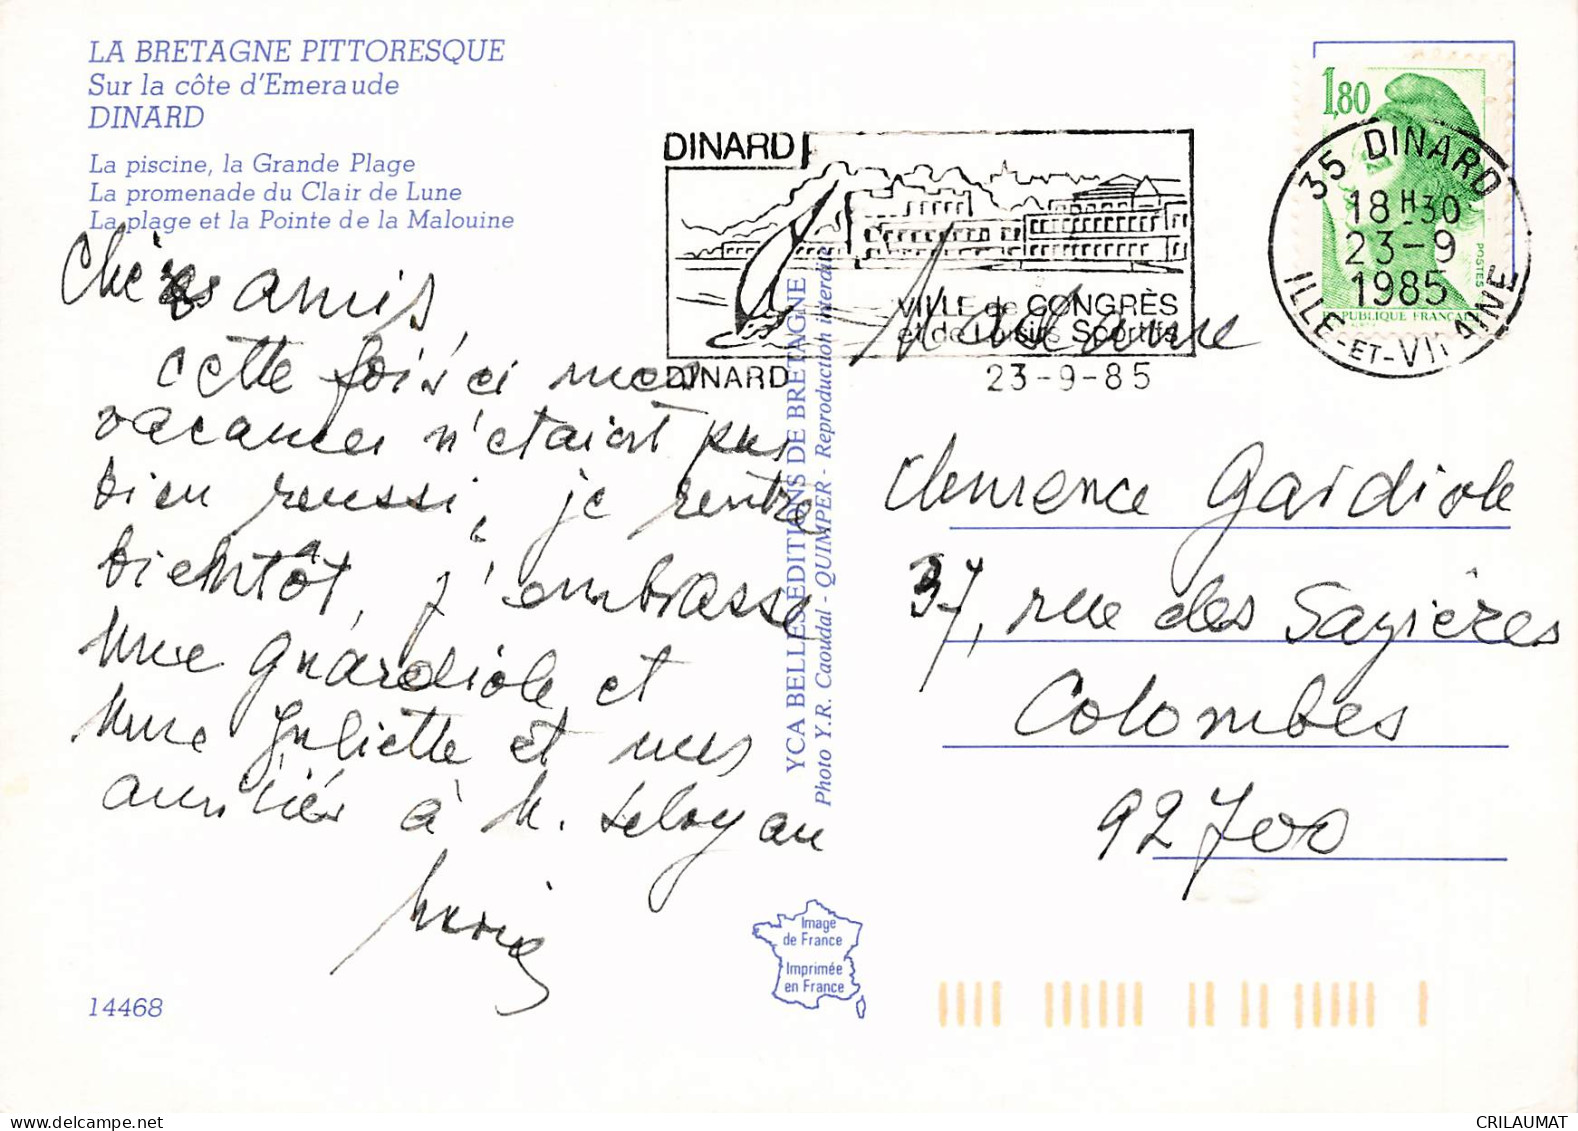 LA BRETAGNE PITTORESQUE
Sur la côte d'Emeraude
DINARD
La piscine, la Grande Plage
La promenade du Clair de Lune
La plage et la Pointe de la Malouine
Chères amis,
cette fois'ci mes
vacances n'étaient pas
bien reussi, je rentre
bientôt, j'embrasse
Mme Guardiole et
Mme Juliette et mes
amitiés à M.
14468
DINARD
VILLE de CONGRÈS
et de Loisirs Sportifs
DINARD
23-9-85
1,80
POSTES
REPUBLIQUE FRANCAISE
35 DINARD
18H30
23-9
1985
ILLE-ET-VILAINE
YCA BELLES EDITIONS DE BRETAGNE
Photo Y.R. Caoudal - QUIMPER - Reproduction interdite
Madame
Clemence Gardiole
37, rue des Sazières
Colombes
92700
Image
de France
Imprimée
en France
CRILAUMAT